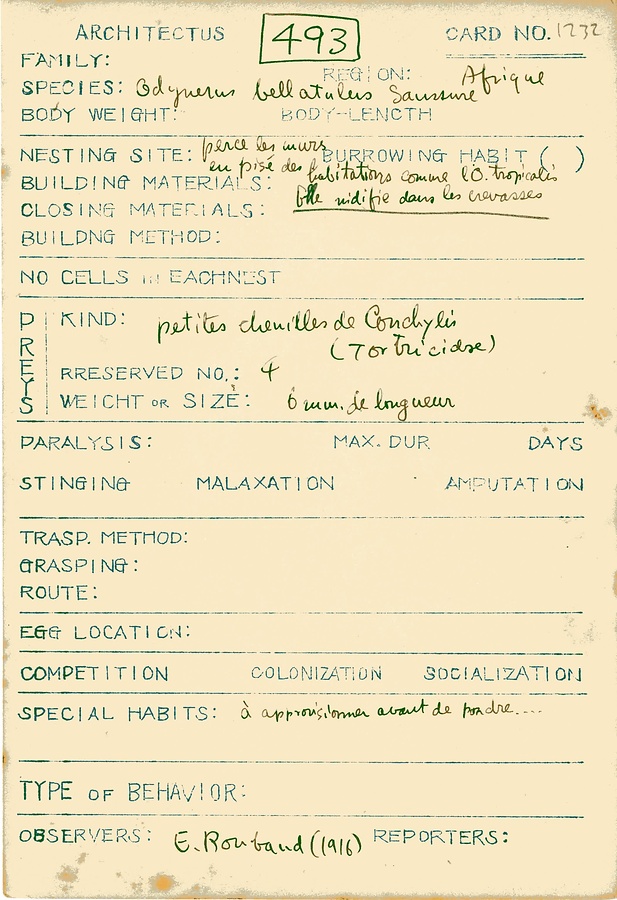 ARCHITECTUS 493 CARD NO. 1232
FAMILY: REGION: Afrique
SPECIES: Odynerus bellatulus Saussure
BODY WEIGHT: BODY-LENGTH
NESTING SITE: perce les murs BURROWING HABIT ( )
en pisé des habitations comme l'O. tropicalis
BUILDING MATERIALS:
CLOSING MATERIALS: Elle nidifie dans les crevasses
BUILDNG METHOD:
NO CELLS in EACHNEST
PREYS
KIND: petites chenilles de Conchylis
(Tortricidae)
RRESERVED NO.: 4
WEICHT OR SIZE: 6 mm. de longueur
PARALYSIS: MAX. DUR DAYS
STINGING MALAXATION AMPUTATION
TRASP. METHOD:
GRASPING:
ROUTE:
EGG LOCATION:
COMPETITION COLONIZATION SOCIALIZATION
SPECIAL HABITS: à approvisionner avant de pondre....
TYPE OF BEHAVIOR:
OBSERVERS: E. Roubaud (1916) REPORTERS: